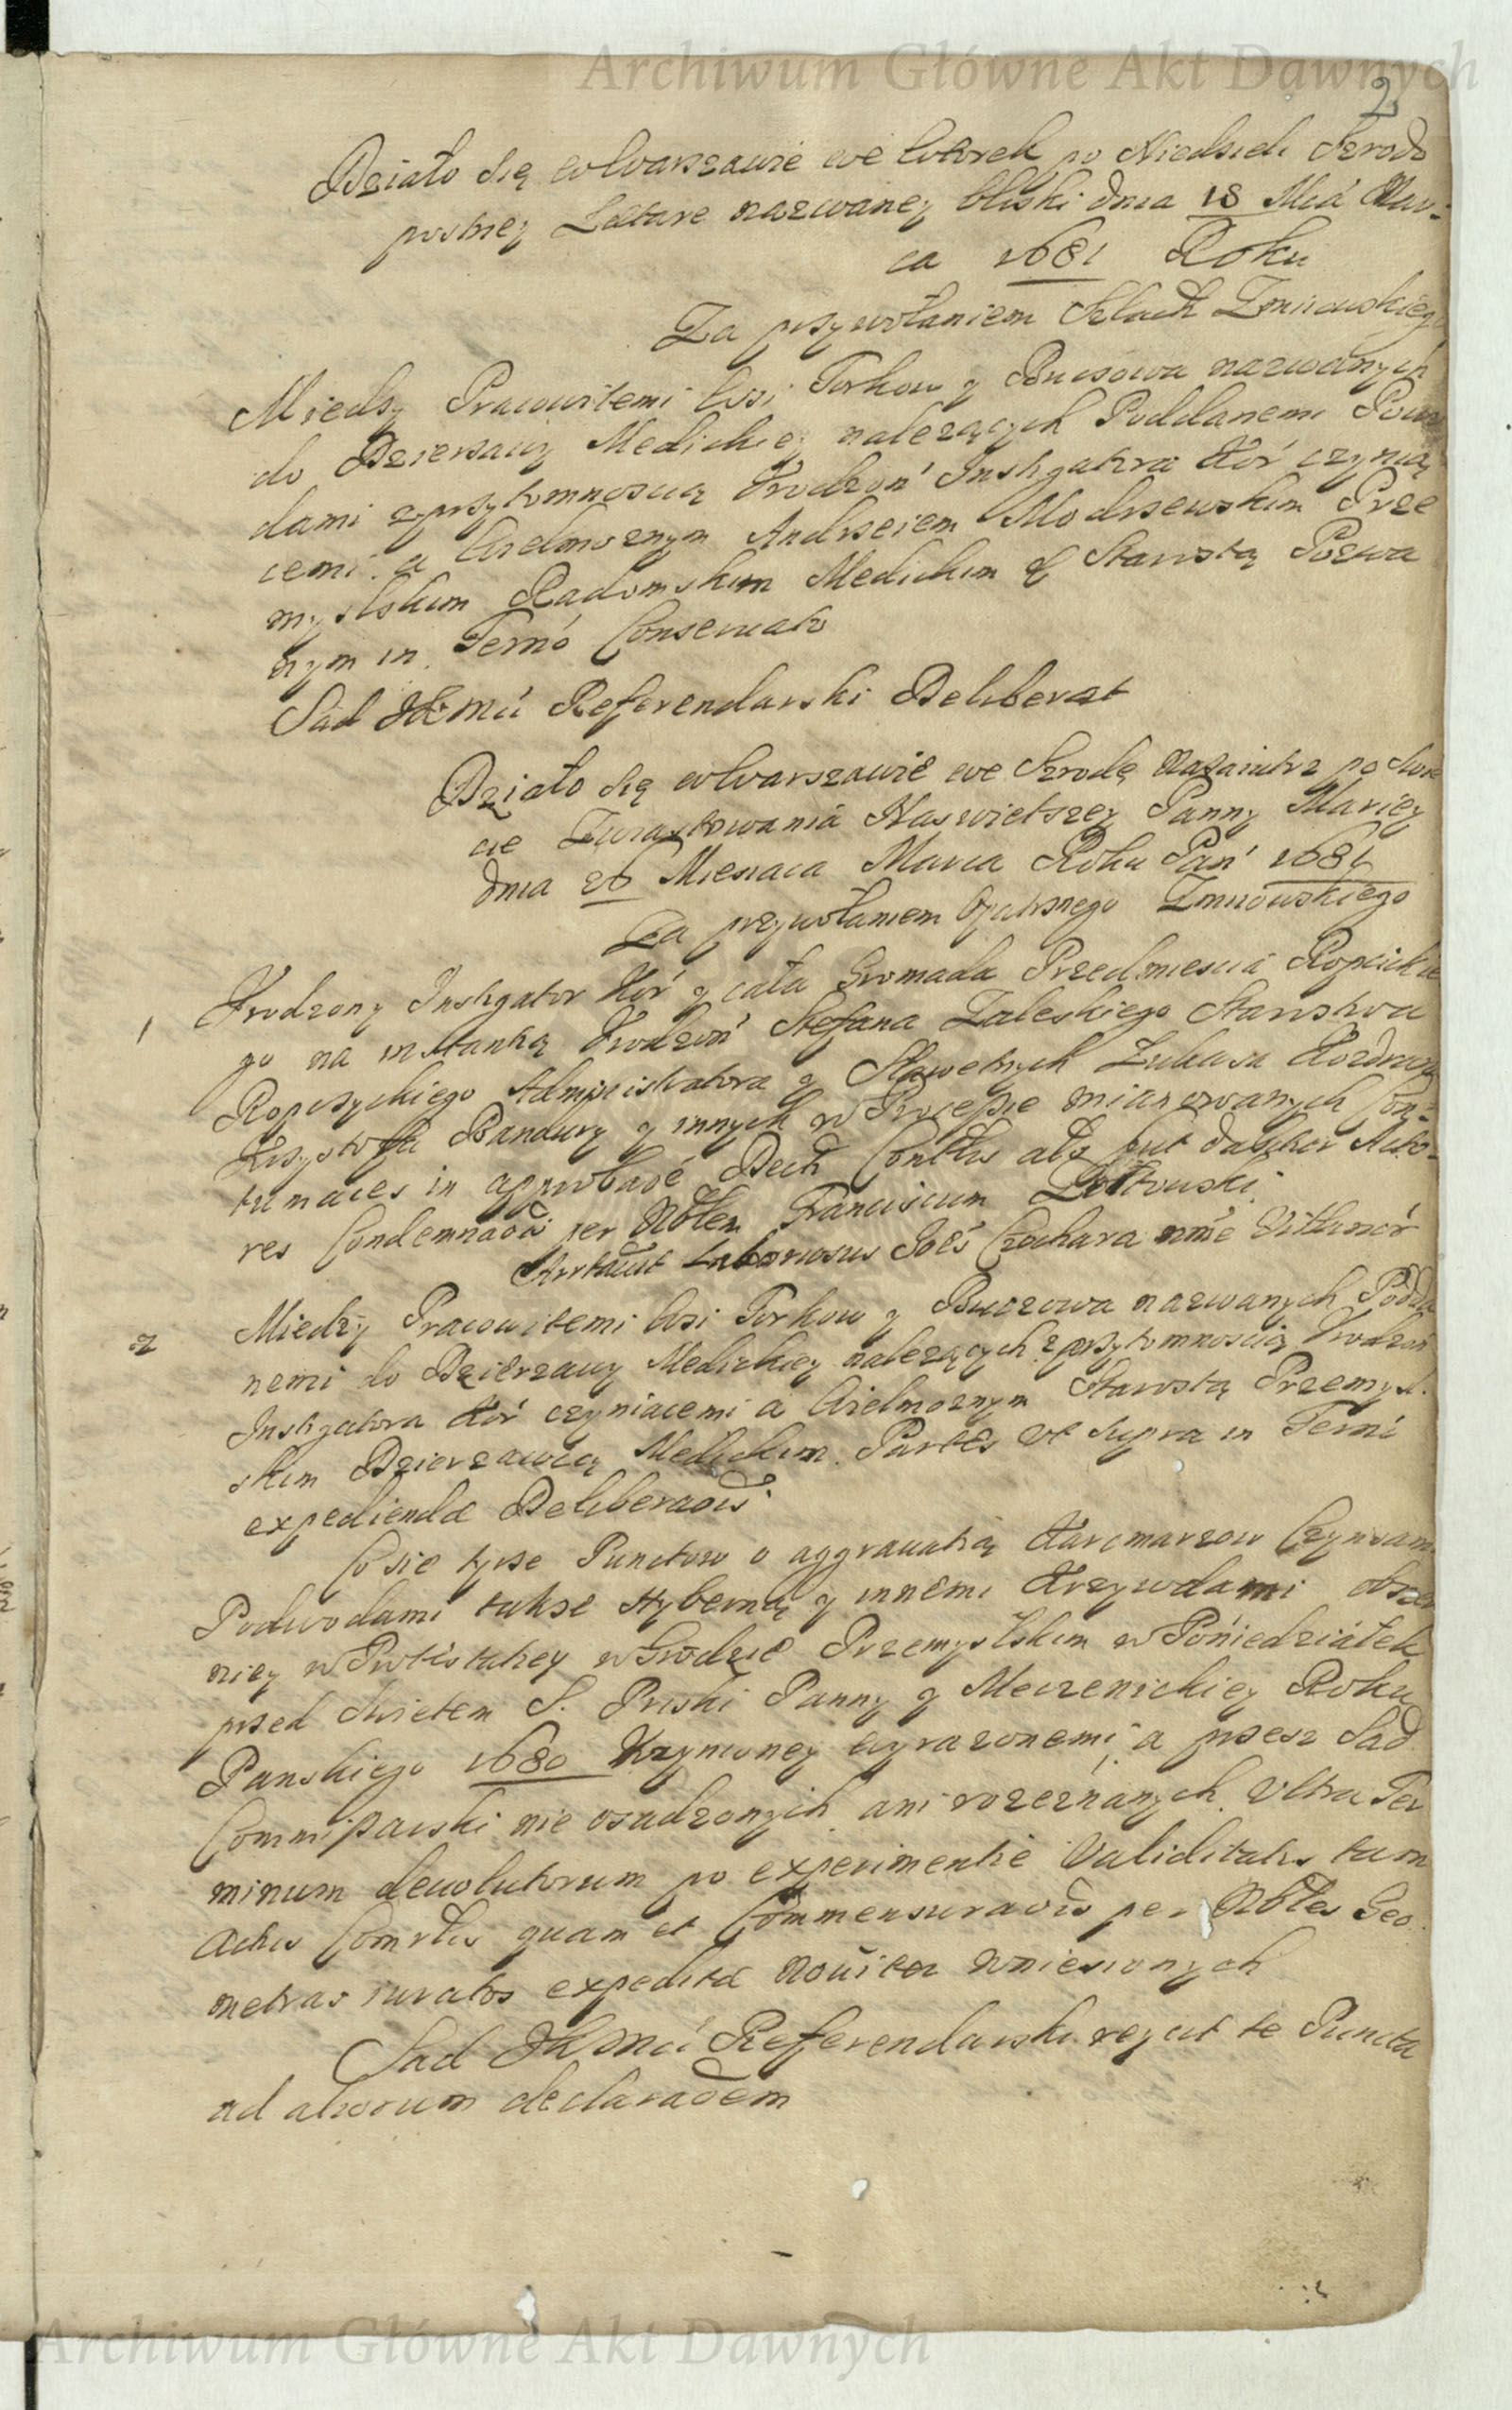 Archiwum Główne Akt Dawnych
2
Działo się wWarszawie we Wtorek po Niedzieli Szrodo
postney Lætare nazwaney bliski dnia 18 Mcá Mar-
ca 1681 Roku
Za przywołaniem Szlach Zmiiowskiego
Miedzy Pracowitemi Wsi Torkow y Bucowa nazwanych
do Dzierzawy Medickiey należących Poddanemi Powo
dami zprzytomnoscią Urodzoń Instigatora Kor czynią
cemi a Wielmoznym Andrzeiem Modrzewskim Prze
myslskim Radomskim Medickim &c Starostą Pozwa
nym in Termó Conseruato
Sąd JKMci Referendarski Deliberat
Działo się wWarszawie we Szrodę Nazaiutrz po Swie
cie Zwiastowania Naswietszey Panny Mariey
dnia 26 Miesiaca Marca Roku Pań 1681
Za przywołaniem Opatrznego Zmiiowskiego
1 Urodzony Instigator Kor y cała Gromada Przedmiescia Ropcickie
go na instantią Urodzoń Stefana Zaleskiego Starostwa
Ropczyckiego Administratora y Sławetnych Lukasza
Krzysztofa Bandury y innych w Processie mianowanych Con-
tumaces in approbaoē Decti Contblis als put Acto-
res Condemnaoōi per Nblem Franciscum Zołtowski
Arrtauit Laboriosus Joēs Czochara nīne
2 Miedzy Pracowitemi Wsi Torkow y Buczowa nazwanych Podda
nemi do Dzierzawy Medickiey należących zprzytomnoscią Urodzoń
Instigatora Kor czyniacemi a Wielmoznym Starostą Przemysl-
skim Dzierzawcą Medickim. Partes vt supra in Termi
expediendæ Deliberaois.
Co sie tycze Punctow o aggrauatią Karcmarzow Czynszami
Podwodami takze Hyberną y innemi Krzywdami obszer
niey w Protestatiey w Grodzie Przemyslskim w Poniedziałek
przed Swietem S. Priski Panny y Meczenickiey Roku
Panskiego 1680 Uczynioney wyrazonemi a przez Sąd
Commissarski nie osądzonych ani rozeznanych Vltra Ter
minum deuolutorum po experimentie Validitatis tam
Actus Comrtis quam et Commensuraois per Nbles Geo-
metras iuratos expeditæ nouiter wniesionych
Sąd JKMci Referendarski reycit te Puncta
ad aliorum declaraōem
Archiwum Główne Akt Dawnych